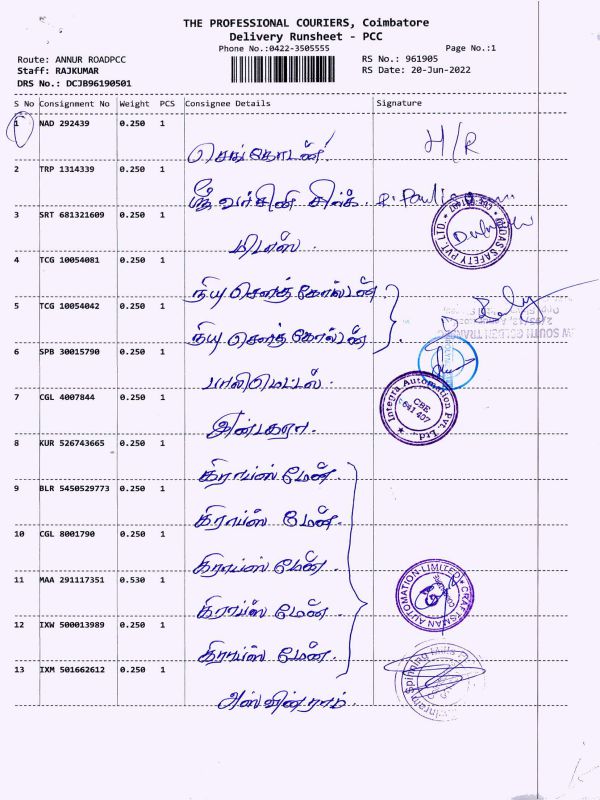 THE PROFESSIONAL COURIERS, Coimbatore
Delivery Runsheet - PCC
Phone No.:0422-3505555
Page No.:1
Route: ANNUR ROADPCC
RS No.: 961905
Staff: RAJKUMAR
RS Date: 20-Jun-2022
DRS No.: DCJB96190501
S No Consignment No Weight PCS Consignee Details Signature
1 NAD 292439 0.250 1
செங்கோடன். H/R
2 TRP 1314339 0.250 1
சிங்க்.
3 SRT 681321609 0.250 1
மிடாஸ். MIDAS SAFETY PVT. LTD.
4 TCG 10054081 0.250 1
நியு சௌத் கோல்டன்.
5 TCG 10054042 0.250 1
நியு சௌத் கோல்டன்.
6 SPB 30015790 0.250 1
பாலிமெட்டல்.
7 CGL 4007844 0.250 1
இன்டகரா. Integra Automation Pvt. Ltd. CBE 641 407
8 KUR 526743665 0.250 1
கிராப்ஸ் மேன்.
9 BLR 5450529773 0.250 1
கிராப்ஸ் மேன்.
10 CGL 8001790 0.250 1
கிராப்ஸ் மேன்.
11 MAA 291117351 0.530 1
கிராப்ஸ் மேன். CRAFTSMAN AUTOMATION LIMITED
12 IXW 500013989 0.250 1
கிராப்ஸ் மேன்.
13 IXM 501662612 0.250 1
அஸ்வின்ராம். Spinning Mills